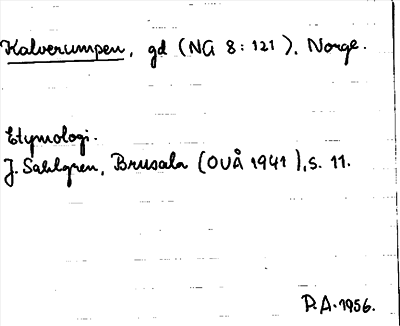 Kalverumpen, gd (NG 8:121). Norge.
Etymologi.
J. Sahlgren, Brusala (OUÅ 1941), s. 11.
P.A. 1956.